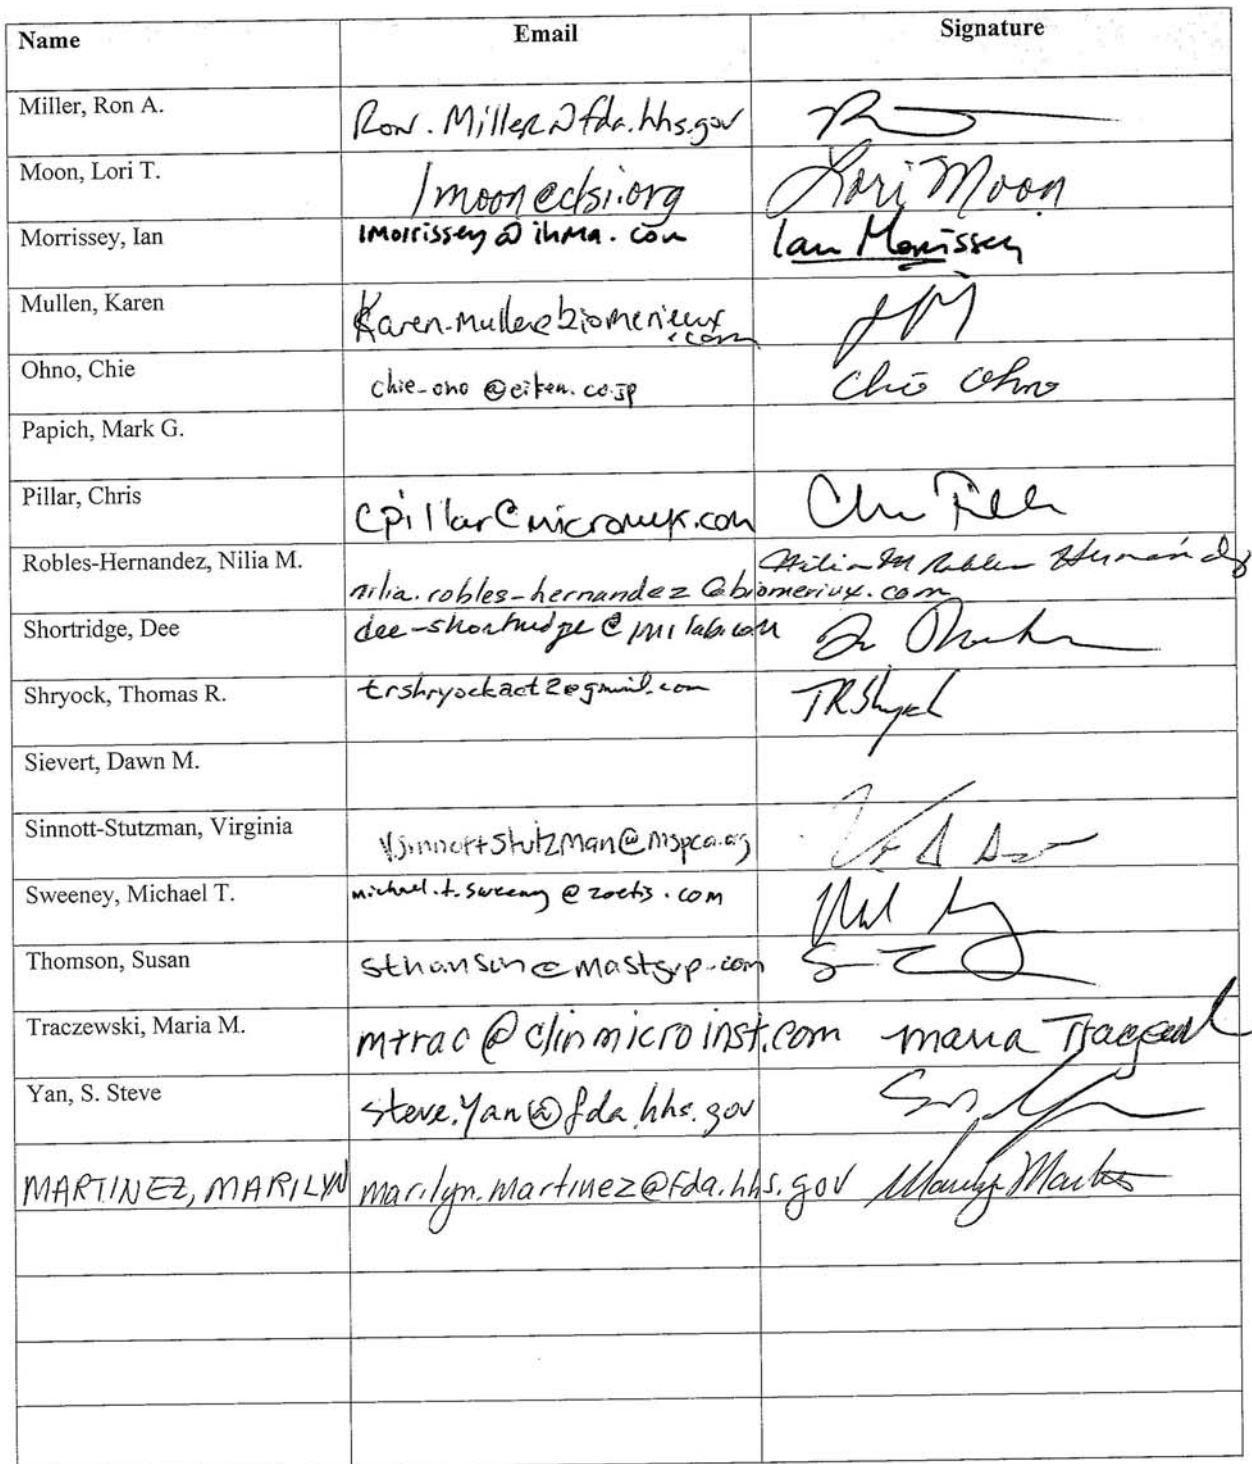 Name Email Signature
Miller, Ron A. Ron.Miller@fda.hhs.gov
Moon, Lori T. lmoon@clsi.org Lori Moon
Morrissey, Ian imorrissey@ihma.com Ian Morrissey
Mullen, Karen Karen.mullen@biomerieux
.com
Ohno, Chie chie-ono@eiken.co.jp Chie Ohno
Papich, Mark G.
Pillar, Chris cpillar@micromyx.com
Robles-Hernandez, Nilia M. Nilia M Robles Hernández
nilia.robles-hernandez@biomeriux.com
Shortridge, Dee dee-shortridge@jmilabs.com
Shryock, Thomas R. trshryockact2@gmail.com TRShryock
Sievert, Dawn M.
Sinnott-Stutzman, Virginia vsinnottstutzman@mspca.org
Sweeney, Michael T. michael.t.sweeney@zoetis.com
Thomson, Susan sthomson@mastgrp.com
Traczewski, Maria M. mtrac@clinmicroinst.com Maria
Yan, S. Steve steve.yan@fda.hhs.gov
MARTINEZ, MARILYN marilyn.martinez@fda.hhs.gov Marilyn Martinez